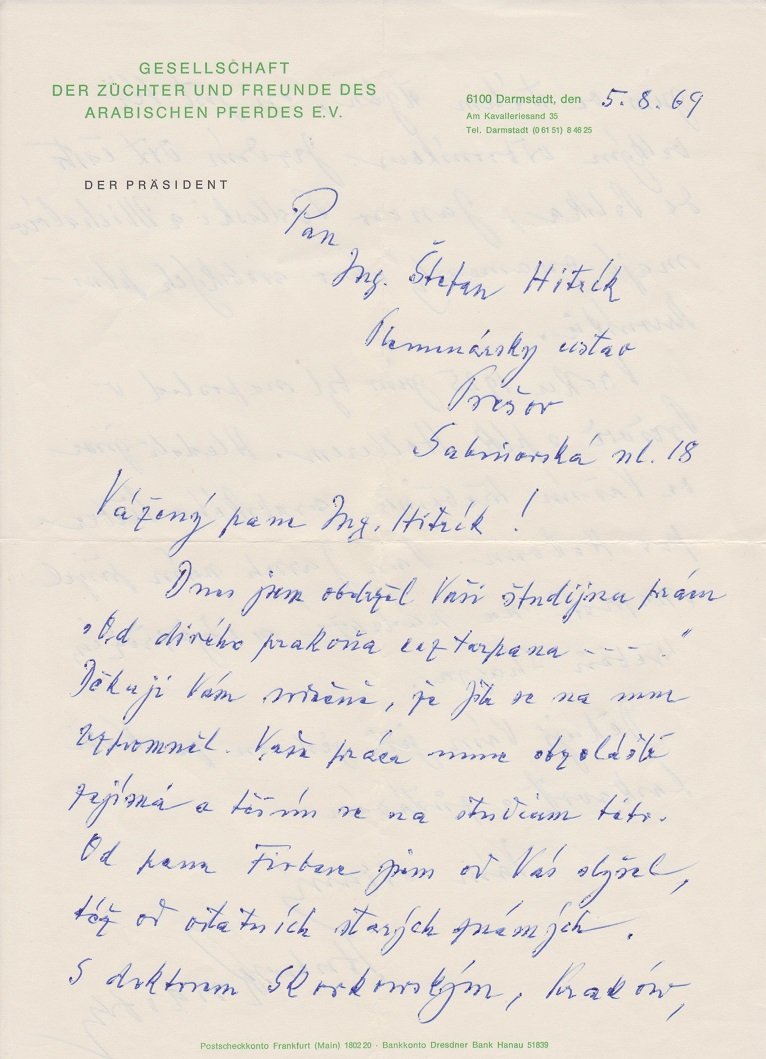 GESELLSCHAFT
DER ZÜCHTER UND FREUNDE DES
ARABISCHEN PFERDES E.V.
6100 Darmstadt, den 5.8.69
Am Kavalleriesand 35
Tel. Darmstadt (0 61 51) 8 46 25
DER PRÄSIDENT
Pan
Ing. Štefan Hitrík
Plemenársky ústav
Prešov
Sabinovská ul. 18
Vážený pane Ing. Hitrík!
Dnes jsem obdržel Vaši študijnu prácu
"Od divého prakoňa
Děkuji Vám srdečně, že jste se na mne
vzpomněl. Vaša práca mne obzvláště
zajímá a těším se na studium této.
Od pana jsem od Vás slyšel,
též od ostatních starých známých.
S doktorem Skorkowským, Kraków,
Postscheckkonto Frankfurt (Main) 1802 20 · Bankkonto Dresdner Bank Hanau 51839